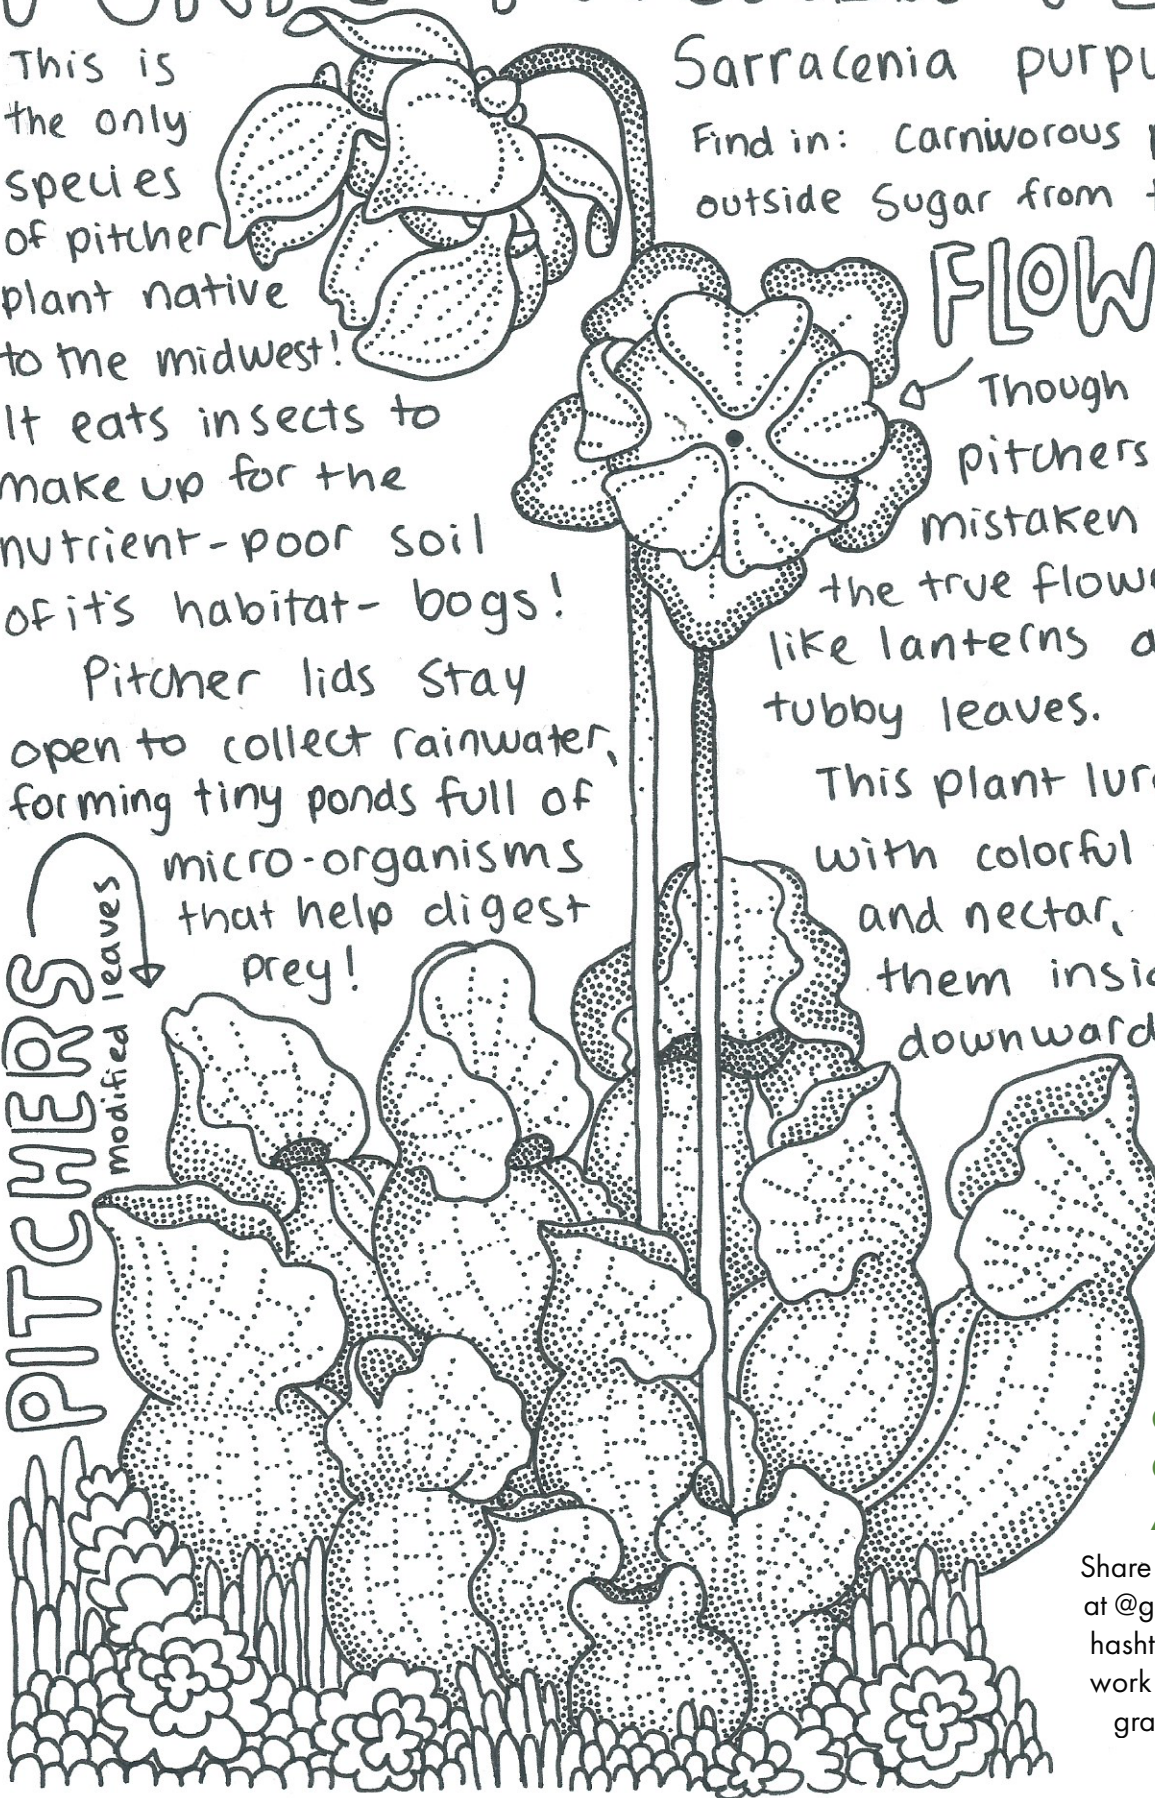 This is
the only
species
of pitcher
plant native
to the midwest!
It eats insects to
make up for the
nutrient-poor soil
of it's habitat- bogs!
Pitcher lids stay
open to collect rainwater,
forming tiny ponds full of
micro-organisms
that help digest
prey!
PITCHERS
modified leaves
Sarracenia purpu
Find in: Carnivorous p
outside Sugar from t
FLOW
Though
pitchers
mistaken
the true flowe
like lanterns a
tubby leaves.
This plant lure
with colorful
and nectar,
them insid
downward
Share
at @g
hasht
work
gra